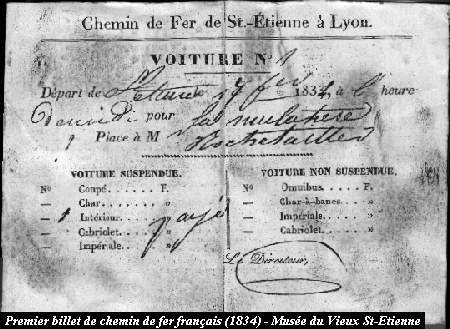 Chemin de Fer de St.-Étienne à Lyon.
VOITURE N.º 1
Départ de le 1834, à l' heure
pour la mulatière
Place à M Rochetaillée
VOITURE SUSPENDUE.
Nº Coupé....... F.
— Char....... »
— 1 Intérieur..... » payé
— Cabriolet.... »
— Impériale.... »
VOITURE NON SUSPENDUE.
Nº Omnibus..... F.
— Char-à-bancs... »
— Impériale..... »
— Cabriolet..... »
Le Directeur,
Premier billet de chemin de fer français (1834) - Musée du Vieux St-Etienne